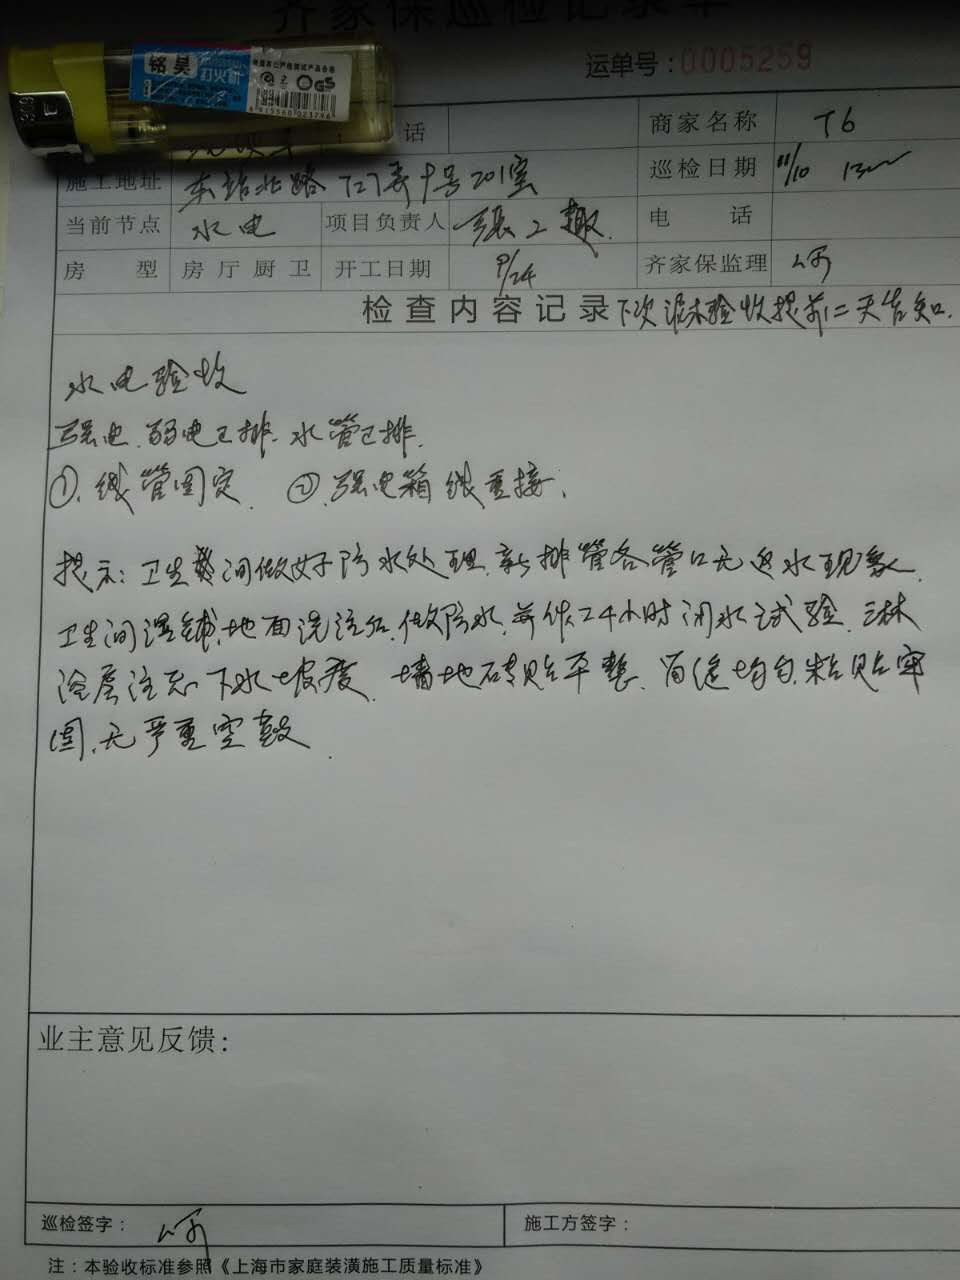 齐家保巡检记录单
运单号：0005259
铭昊 打火机
话 商家名称 T6
施工地址 东站北路727弄十号201室 巡检日期 11/10
当前节点 水电 项目负责人 张工 电 话
房 型 房厅厨卫 开工日期 9/24 齐家保监理
检查内容记录 下次泥木验收提前二天告知.
水电验收
强电.弱电已排.水管已排.
①.线管固定 ②强电箱线重接.
提示:卫生间做好防水处理.新排管各管口无返水现象.
卫生间湿铺,地面浇注后.做防水,并作24小时闭水试验.淋
浴房注意下水坡度.墙地砖贴平整.留缝均匀.粘贴牢
固.无严重空鼓.
业主意见反馈：
巡检签字： 施工方签字：
注：本验收标准参照《上海市家庭装潢施工质量标准》